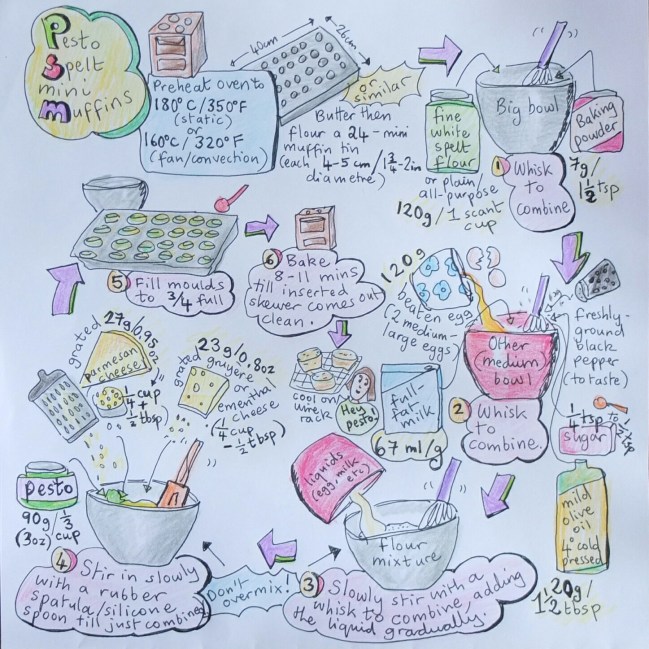 Pesto
Spelt
mini
Muffins
Preheat oven to
180°C/350°F
(static)
or
160°C/320°F
(fan/convection)
40cm
26cm
or
similar
Butter then
flour a 24-mini
muffin tin
(each 4-5cm/1¾-2in
diametre)
fine
white
spelt
flour
or plain/
all-purpose
120g/1 scant
cup
Big bowl
Baking
powder
7g/
1½tsp
1 Whisk
to
combine
120g
beaten egg
(2 medium-
large eggs)
Other
(medium)
bowl
freshly-
ground
black
pepper
(to taste)
full-
fat
milk
67 ml/g
2 Whisk
to
combine.
¼tsp
to
½tsp
sugar
mild
olive
oil
cold
pressed
20g/
1½tbsp
liquids
(egg, milk
etc)
flour
mixture
3 Slowly stir with a
whisk to combine, adding
the liquid gradually.
Don't
overmix!
grated
27g/0.95
oz
parmesan
cheese
¼cup
+
½tbsp
23g/0.8oz
grated gruyere
or
emental
cheese
(¼cup
-½tbsp)
pesto
90g/⅓
(3oz) cup
4 Stir in slowly
with a rubber
spatula/silicone
spoon till just combined
5 Fill moulds
to ¾ full
6 Bake
8-11 mins
till inserted
skewer comes out
clean.
cool on
wire
rack
Hey
pesto!